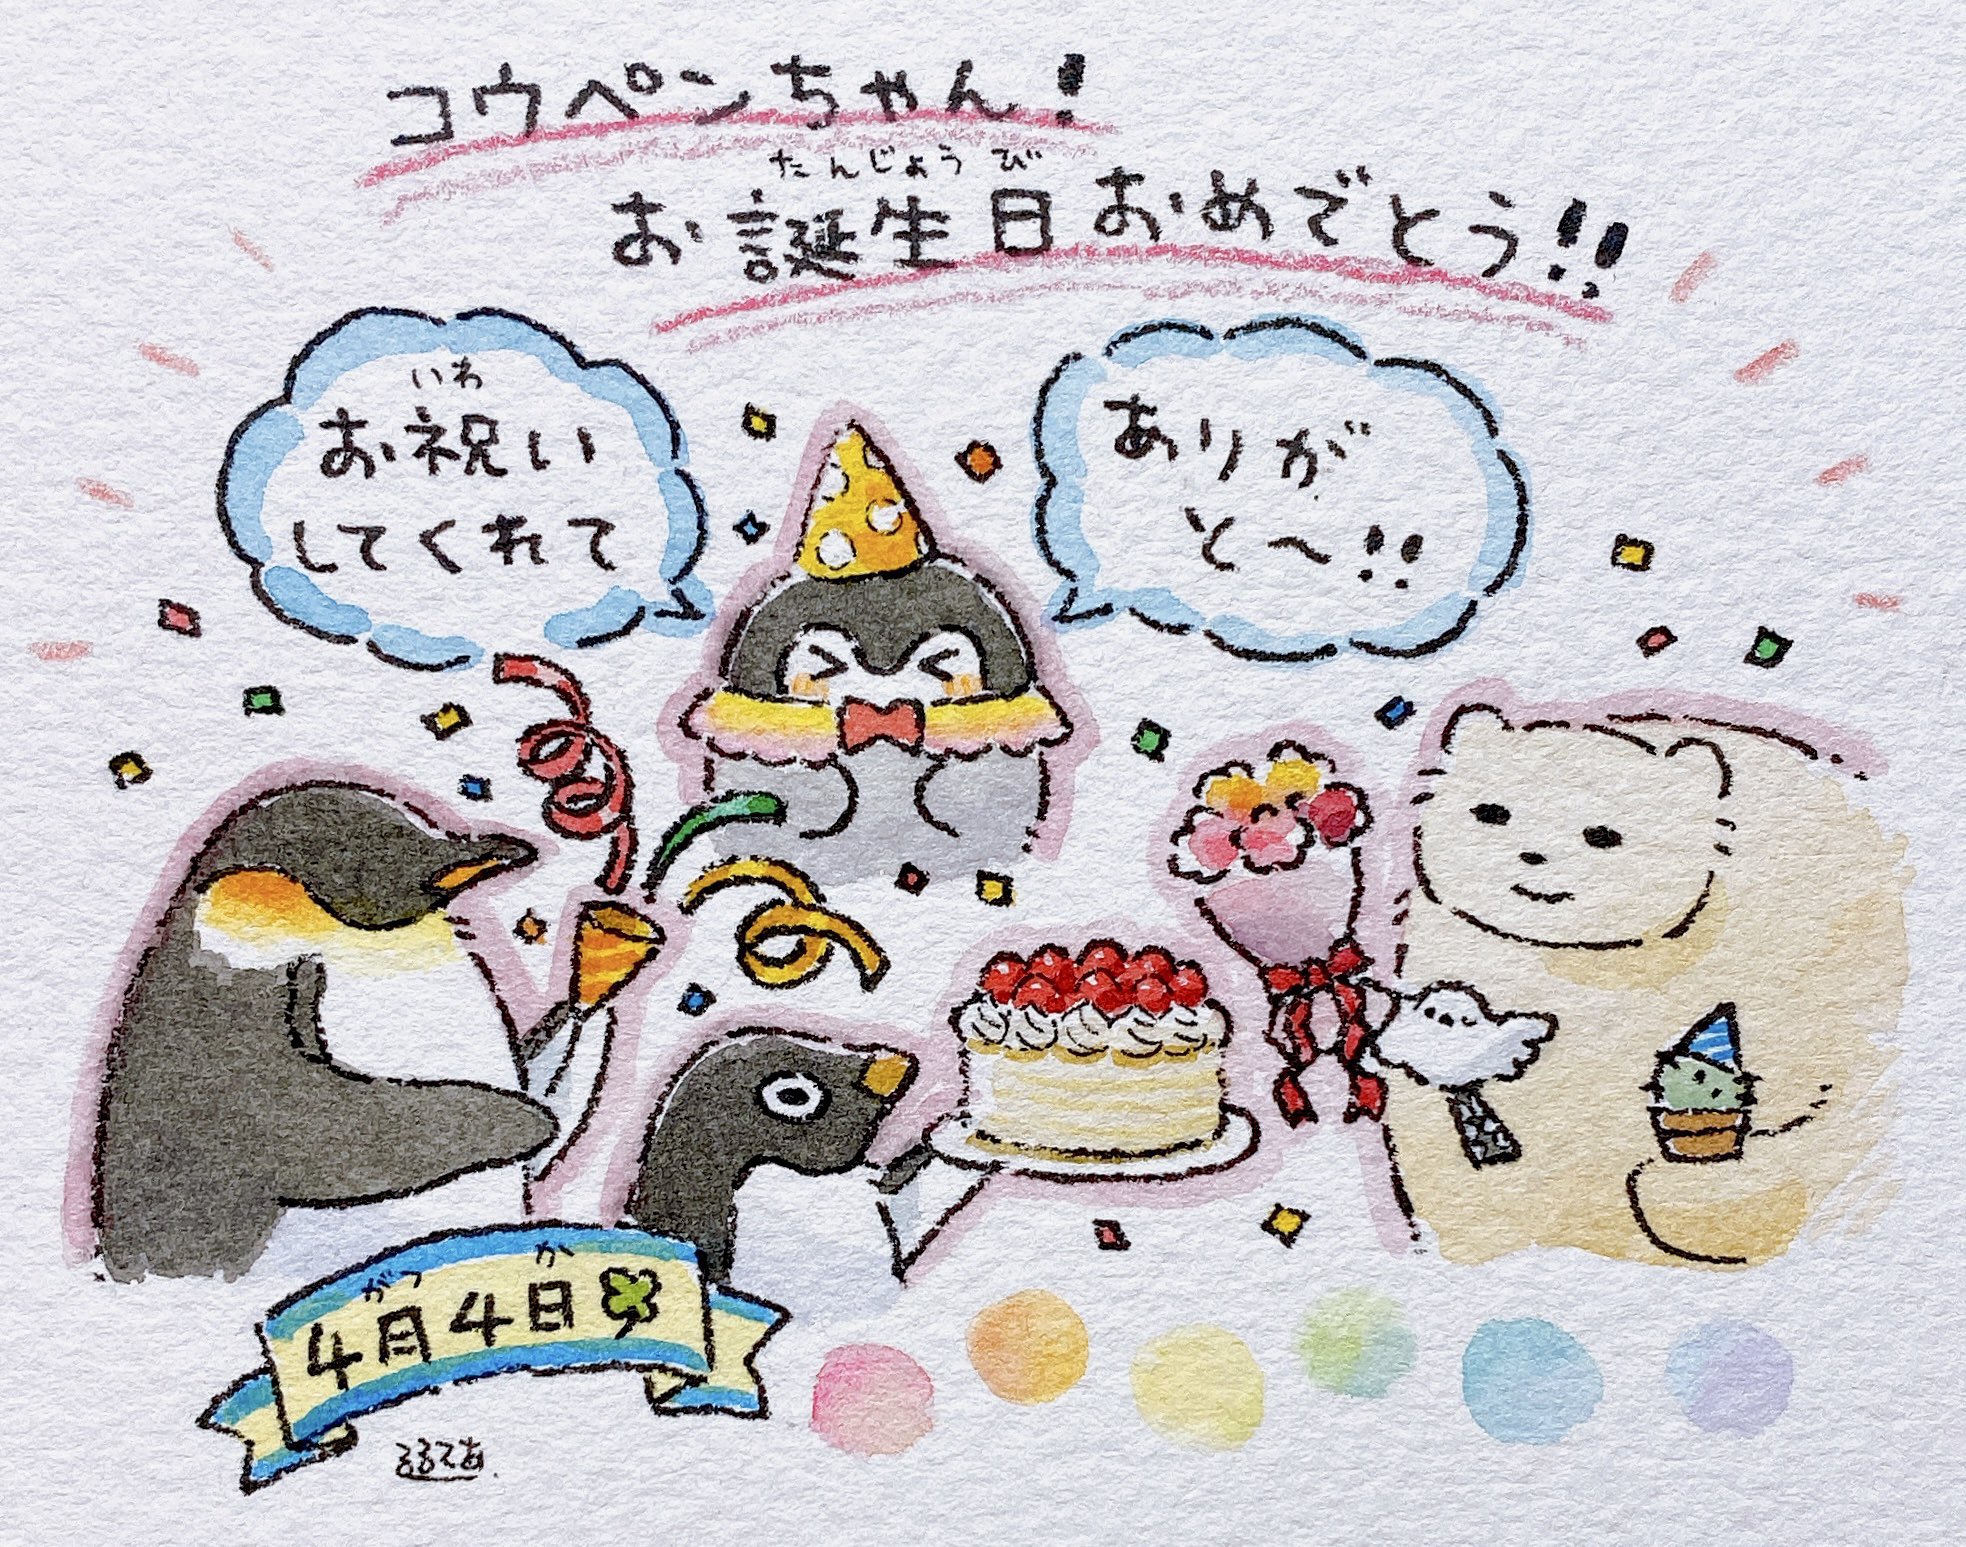 コウペンちゃん!
たんじょうび
お誕生日おめでとう!!
いわ
お祝い
してくれて
ありが
と〜!!
がつ か
4月4日
るるてあ